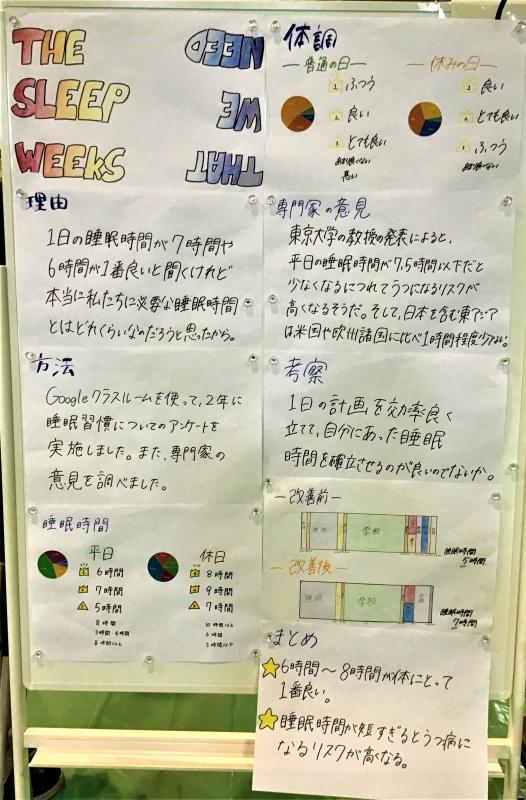 THE
SLEEP
WEEKS
THAT
WE
NEED
理由
1日の睡眠時間が7時間や
6時間が1番良いと聞くけれど
本当に私たちに必要な睡眠時間
とはどれくらいなのだろうと思ったから。
方法
Googleクラスルームを使って、2年に
睡眠習慣についてのアンケートを
実施しました。また、専門家の
意見を調べました。
睡眠時間
平日
1 6時間
2 7時間
3 5時間
8時間
3時間・4時間
8時間以上
休日
1 8時間
2 9時間
3 7時間
10時間以上
6時間
5時間以下
体調
ー普通の日ー
1 ふつう
2 良い
3 とても良い
あまり良くない
悪い
ー休みの日ー
1 良い
2 とても良い
3 ふつう
あまり良くない
専門家の意見
東京大学の教授の発表によると、
平日の睡眠時間が7.5時間以下だと
少なくなるにつれてうつになるリスクが
高くなるそうだ。そして、日本を含む東アジア
は米国や欧州諸国に比べ1時間程度少ない。
考察
1日の計画を効率良く
立てて、自分にあった睡眠
時間を確立させるのが良いのでないか。
ー改善前ー
睡眠
学校
睡眠時間
5時間
ー改善後ー
睡眠
学校
睡眠時間
7時間
まとめ
6時間〜8時間が体にとって
1番良い。
睡眠時間が短すぎるとうつ病に
なるリスクが高くなる。